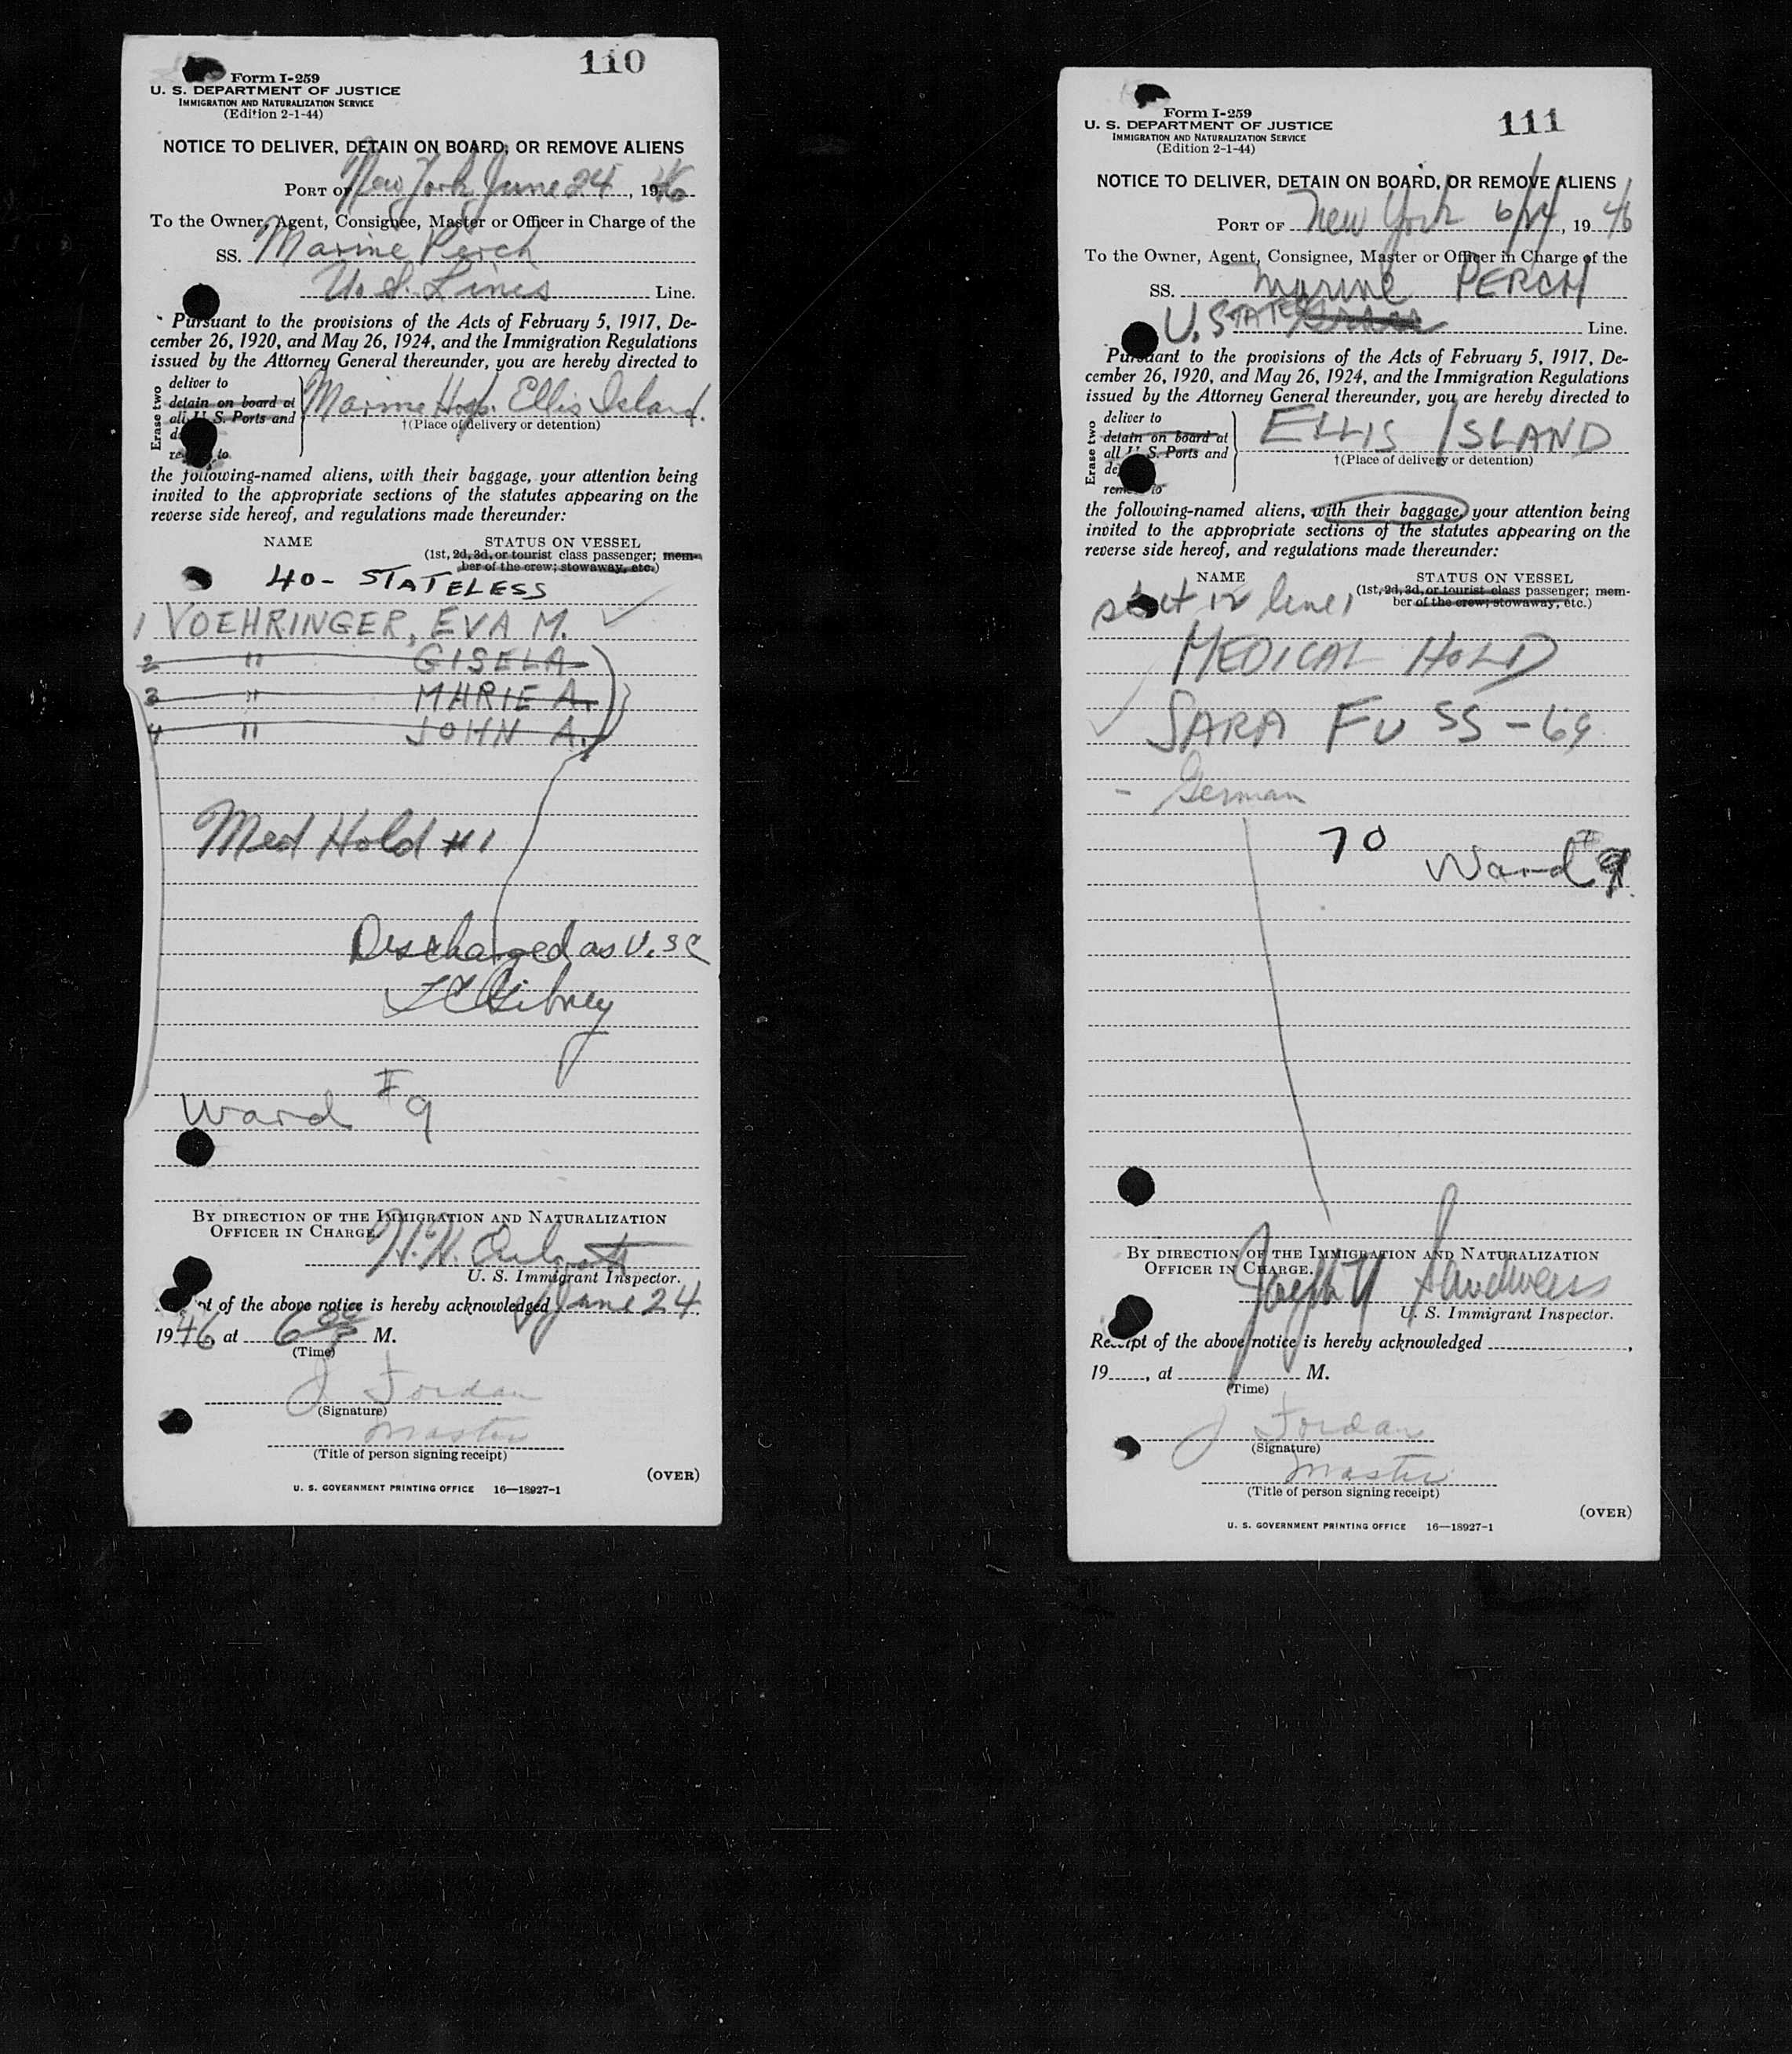 110
Form I-259
U. S. DEPARTMENT OF JUSTICE
IMMIGRATION AND NATURALIZATION SERVICE
(Edition 2-1-44)
NOTICE TO DELIVER, DETAIN ON BOARD, OR REMOVE ALIENS
PORT OF New York June 24, 1946
To the Owner, Agent, Consignee, Master or Officer in Charge of the
SS. Marine Perch
U. S. Lines Line.
Pursuant to the provisions of the Acts of February 5, 1917, De-
cember 26, 1920, and May 26, 1924, and the Immigration Regulations
issued by the Attorney General thereunder, you are hereby directed to
Erase two
deliver to
detain on board at
all U. S. Ports and
Marine Hosp. Ellis Island.
†(Place of delivery or detention)
to
the following-named aliens, with their baggage, your attention being
invited to the appropriate sections of the statutes appearing on the
reverse side hereof, and regulations made thereunder:
NAME STATUS ON VESSEL
(1st, 2d, 3d, or tourist class passenger; mem-
ber of the crew; stowaway, etc.)
40 - STATELESS
1 VOEHRINGER, EVA M.
2 " GISELA
3 " MARIE A.
4 " JOHN A.
Med Hold #1
Discharged as U.S.C
Ward #9
BY DIRECTION OF THE IMMIGRATION AND NATURALIZATION
OFFICER IN CHARGE.
H. H.
U. S. Immigrant Inspector.
of the above notice is hereby acknowledged June 24
1946, at 6 M.
(Time)
J Jordan
(Signature)
Master
(Title of person signing receipt)
(OVER)
U. S. GOVERNMENT PRINTING OFFICE 16—18927-1
111
Form I-259
U. S. DEPARTMENT OF JUSTICE
IMMIGRATION AND NATURALIZATION SERVICE
(Edition 2-1-44)
NOTICE TO DELIVER, DETAIN ON BOARD, OR REMOVE ALIENS
PORT OF New York 6/24, 1946
To the Owner, Agent, Consignee, Master or Officer in Charge of the
SS. Marine PERCH
U. STATES Line.
Pursuant to the provisions of the Acts of February 5, 1917, De-
cember 26, 1920, and May 26, 1924, and the Immigration Regulations
issued by the Attorney General thereunder, you are hereby directed to
Erase two
deliver to
detain on board at
all U. S. Ports and
ELLIS ISLAND
†(Place of delivery or detention)
the following-named aliens, with their baggage, your attention being
invited to the appropriate sections of the statutes appearing on the
reverse side hereof, and regulations made thereunder:
NAME STATUS ON VESSEL
(1st, 2d, 3d, or tourist class passenger; mem-
ber of the crew; stowaway, etc.)
MEDICAL HOLD
SARA FUSS - 69
- German
70
Ward #9
BY DIRECTION OF THE IMMIGRATION AND NATURALIZATION
OFFICER IN CHARGE.
Joseph
U. S. Immigrant Inspector.
Receipt of the above notice is hereby acknowledged ,
19 , at M.
(Time)
J Jordan
(Signature)
Master
(Title of person signing receipt)
(OVER)
U. S. GOVERNMENT PRINTING OFFICE 16—18927-1